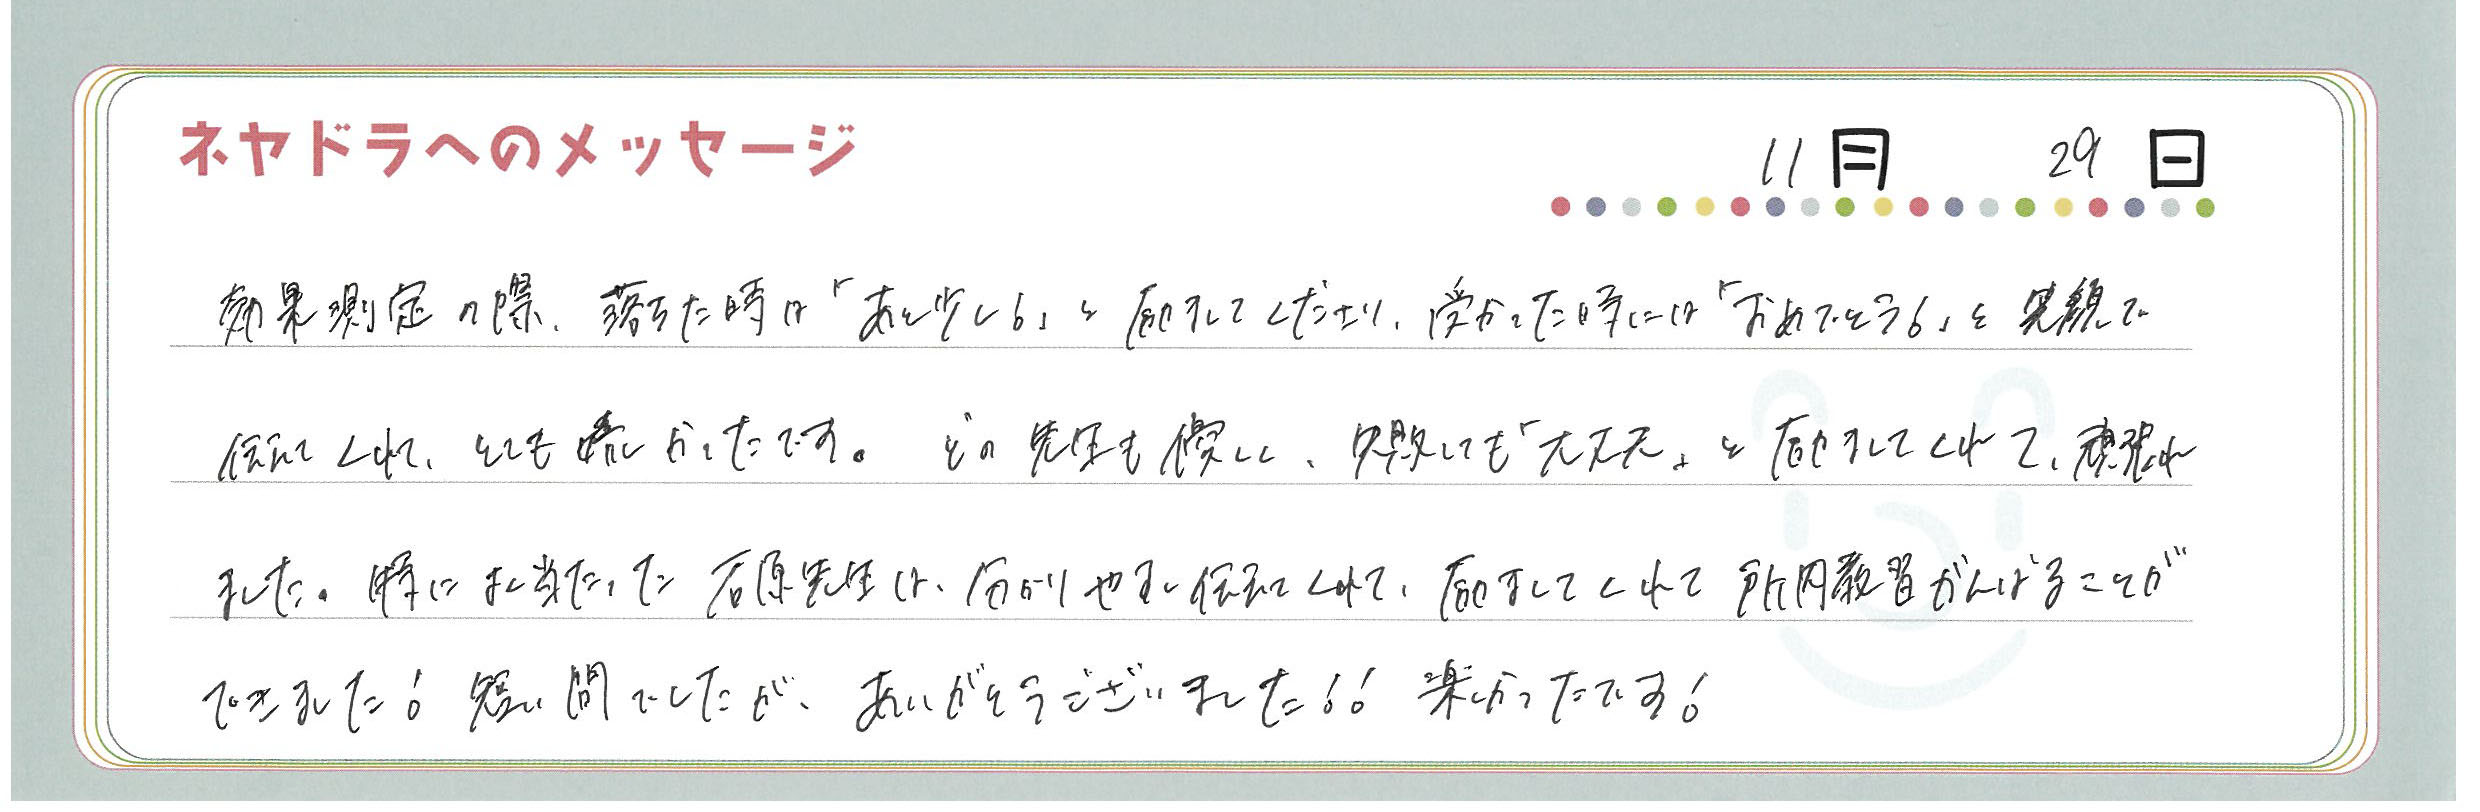 ネヤドラへのメッセージ
11月 29日
効果測定の際、落ちた時は「あと少し！」と励ましてくださり、受かった時には「おめでとう！」と笑顔で
伝えてくれて、とても嬉しかったです。どの先生も優しく、失敗しても「大丈夫」と励ましてくれて、頑張れ
ました。特にお当たった石原先生は、分かりやすく伝えてくれて、励ましてくれて所内教習がんばることが
できました！短い間でしたが、ありがとうございました！！楽しかったです！